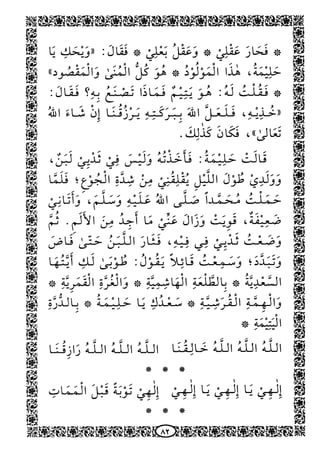 * فَحَارَ عَقْلِيْ * وَعَقْلُ بَعْلِيْ * فَقَالَ: «وَيْحَكِ يَا
حَلِيْمَةُ، هٰذَا الْمَوْلُوْدُ * هُوَ كُلُّ الْمُنَىٰ وَالْمَقْصُودُ»
* فَقُلْتُ لَهُ: هُوَ يَتِيْمٌ فَمَاذَا تَصْنَعُ بِهِ؟ فَقَالَ:
«خُذِيْهِ، فَلَعَلَّ اللهَ بِبَرَكَتِهِ يَرْزُقُنَا إِنْ شَاءَ اللهُ
تَعَالَىٰ»، فَكَانَ كَذٰلِكَ.
قَالَتْ حَلِيْمَةُ: فَأَخَذْتُهُ وَلَيْسَ فِيْ ثَدْيِيْ لَبَنٌ،
وَوَلَدِيْ طُوْلَ اللَّيْلِ يُقْلِقُنِيْ مِنْ شِدَّةِ الْجُوْعِ؛ فَلَمَّا
حَمَلْتُ مُحَمَّداً صَلَّى اللهُ عَلَيْهِ وَسَلَّمَ، وَأَتَانِيْ
ضَعِيْفَةً، قَوِيَتْ وَزَالَ عَنِّيْ مَا أَجِدُ مِنَ الْأَلَمِ. ثُمَّ
وَضَعْتُ ثَدْيِيْ فِي فِيْهِ، فَثَارَ اللَّبَنُ حَتَّىٰ فَاضَ
وَتَبَدَّدَ؛ وَسَمِعْتُ قَائِلاً يَقُوْلُ: طُوْبَىٰ لَكِ أَيَّتُهَا
السَّعْدِيَّةُ * بِالطَّلْعَةِ الْهَاشِمِيَّةِ * وَالْغُرَّةِ الْقَمَرِيَّةِ *
وَالْهِمَّةِ الْقُرَشِيَّةِ * سَعْدُكِ يَا حَلِيْمَةُ * بِالدُّرَّةِ
الْيَتِيْمَةِ *
اللهُ اللهُ اللهُ اللهُ خَالِقُنَا اللهُ اللهُ اللهُ اللهُ رَازِقُنَا
* * *
إِلٰهِيْ يَا إِلٰهِيْ يَا إِلٰهِيْ إِلٰهِيْ تَوْبَةً قَبْلَ الْمَمَاتِ
* * *
٨٢